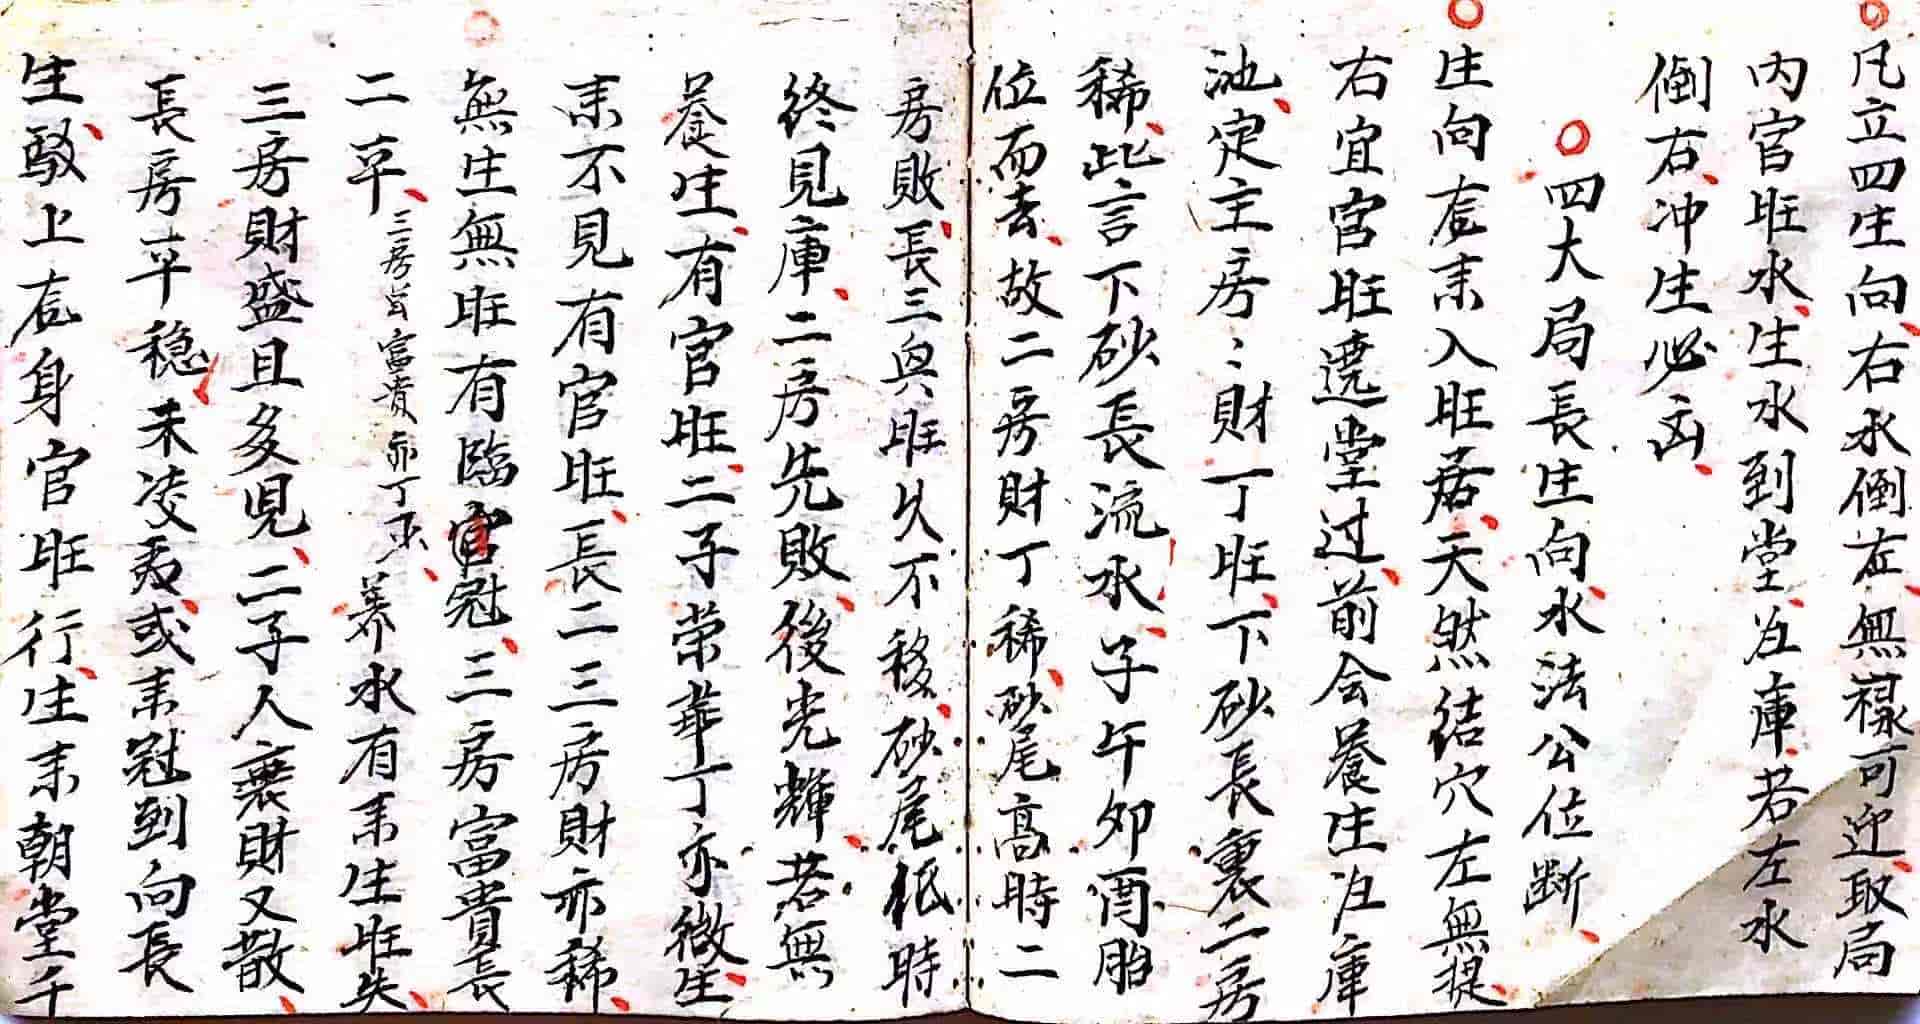 凡立四生向右水倒左無祿可迎取局
内官旺水生水到堂左庫若左水
倒右冲生必凶
四大局長生向水法公位断
生向左来入旺居天然结穴左無提
右宜官旺遶堂过前会養生注庫
池定主房〻財丁旺下砂長裏二房
稀此言下砂長流水子午卯酉胎
位而去故二房財丁稀砂尾高時二
房敗長三與旺久不移砂尾低時
终見庫二房先敗後光輝若無
養生有官旺二子荣華丁亦微生
来不見有官旺長二三房財亦稀
無生無旺有臨官冠三房富貴長
二平三房富貴亦丁养水有来生旺失
三房財盛且多児二子人衰財又散
長房平稳未凌夷或来冠到向長
生敗上左身官旺行生来朝堂千